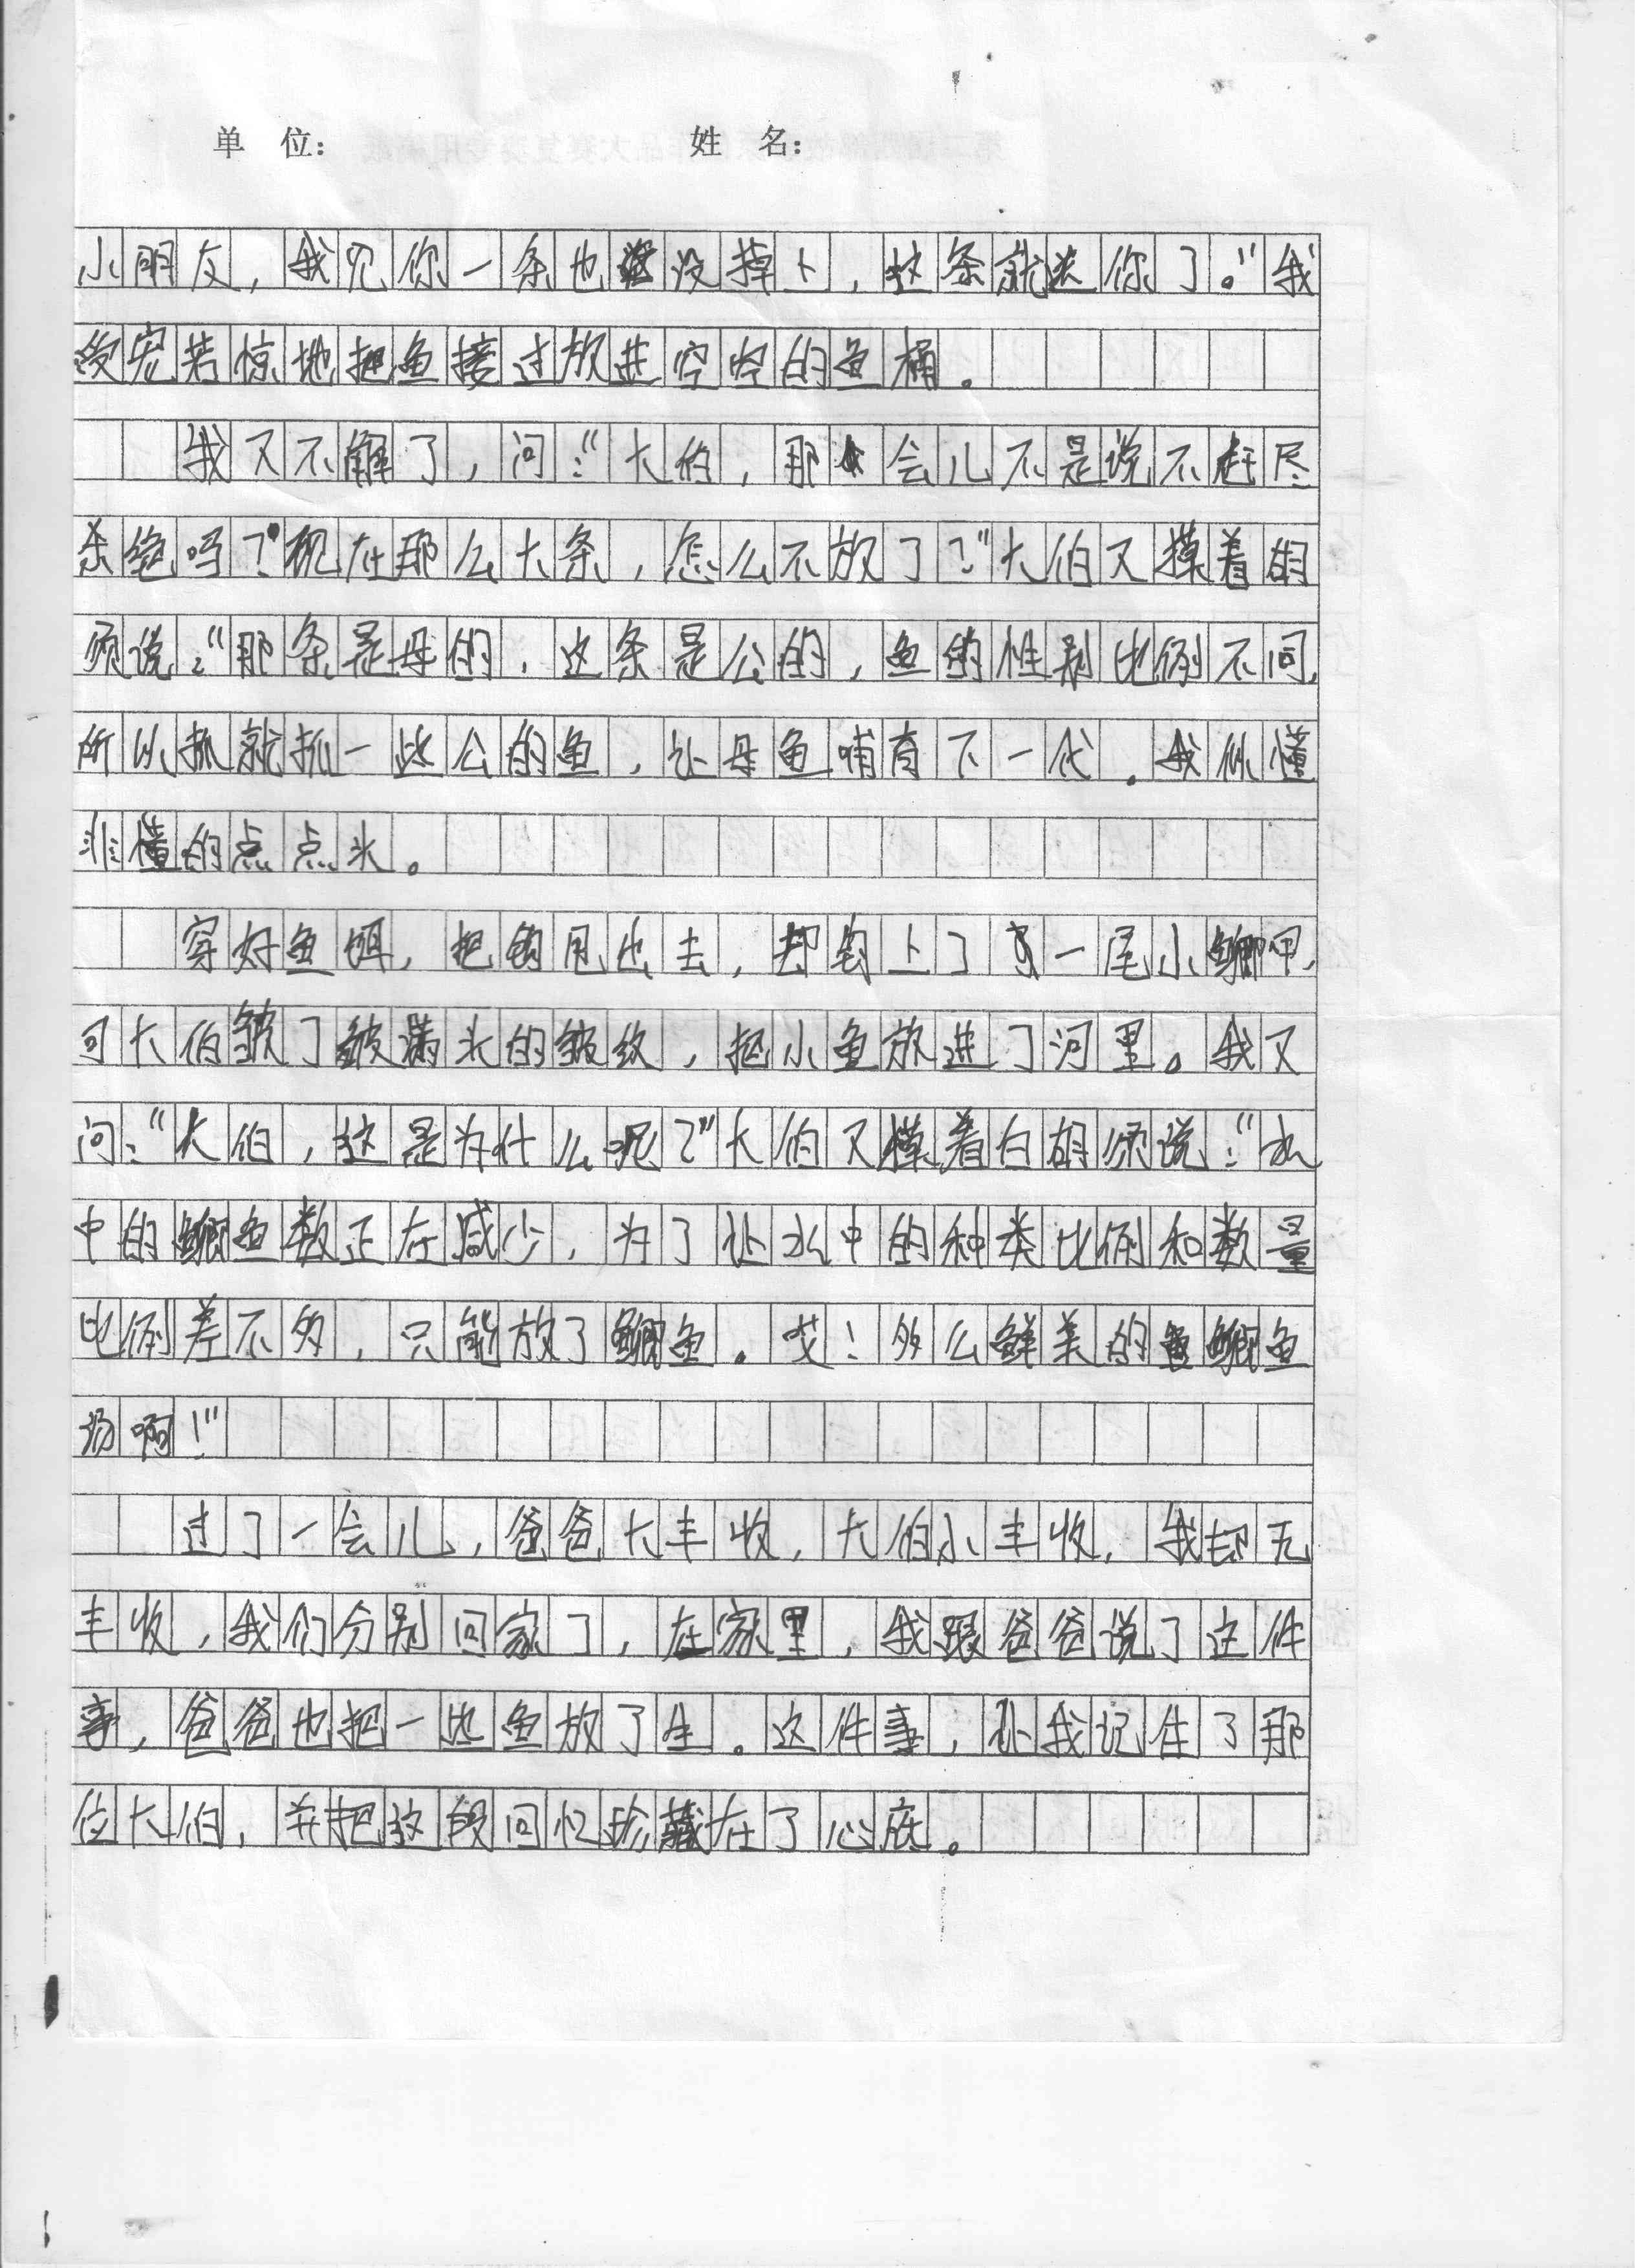 单 位： 姓 名：
小朋友，我见你一条也没掉上，这条就送你了。"我
受宠若惊地把鱼接过放进空空的鱼桶。
我又不解了，问："大伯，那会儿不是说不赶尽
杀绝吗？现在那么大条，怎么不放了？"大伯又摸着胡
须说："那条是母的，这条是公的，鱼的性别比例不同，
所以抓就抓一些公的鱼，让母鱼哺育下一代。我似懂
非懂的点点头。
穿好鱼饵，把钩甩出去，却钩上了一尾小鲫甲，
可大伯皱了皱满头的皱纹，把小鱼放进了河里。我又
问："大伯，这是为什么呢？"大伯又摸着白胡须说："水
中的鲫鱼数正在减少，为了让水中的种类比例和数量
比例差不多，只能放了鲫鱼。哎！多么鲜美的鲫鱼
汤啊！"
过了一会儿，爸爸大丰收，大伯小丰收，我却无
丰收，我们分别回家了，在家里，我跟爸爸说了这件
事，爸爸也把一些鱼放了生。这件事，让我记住了那
位大伯，并把这段回忆珍藏在了心底。